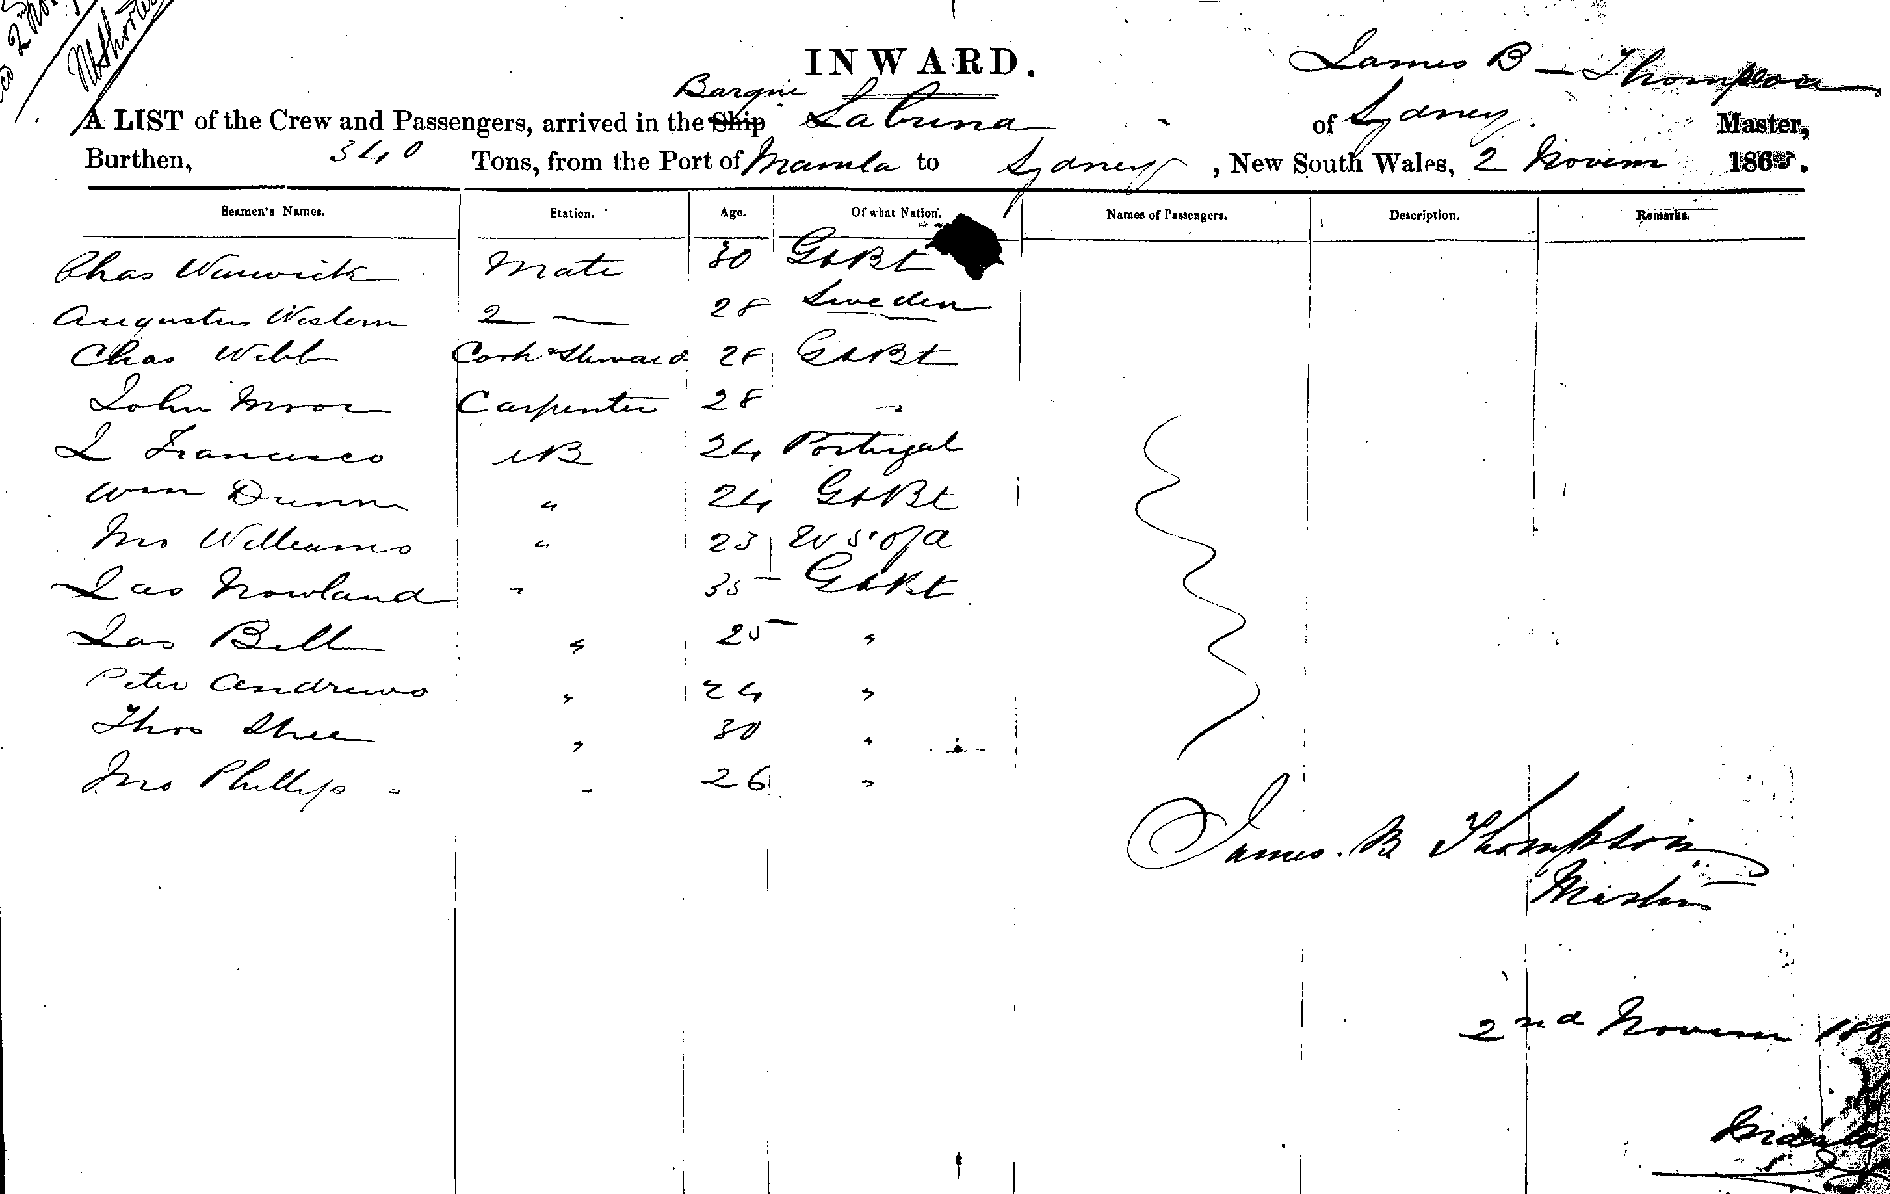 INWARD.
James B Thompson
Barque
A LIST of the Crew and Passengers, arrived in the Ship Sabrina of Sydney Master,
Burthen, 340 Tons, from the Port of Manila to Sydney, New South Wales, 2 Novem 186
Seamen's Names. Station. Age. Of what Nation. Names of Passengers. Description. Remarks.
Chas Warwick Mate 30 Gt Bt
Augustus Western 2 — 28 Sweden
Chas Webb Cook & Steward 28 Gt Bt
John Moor Carpenter 28 "
J Francisco AB 24 Portugal
Wm Dunn " 24 Gt Bt
Jno Williams " 23 U S of A
Jas Nowland " 35 Gt Bt
Jas Bell " 25 "
Peter Andrews " 24 "
Thos Shee " 30 "
Jno Phillips " 26 "
James. B Thompson
Master
2nd Novem 186